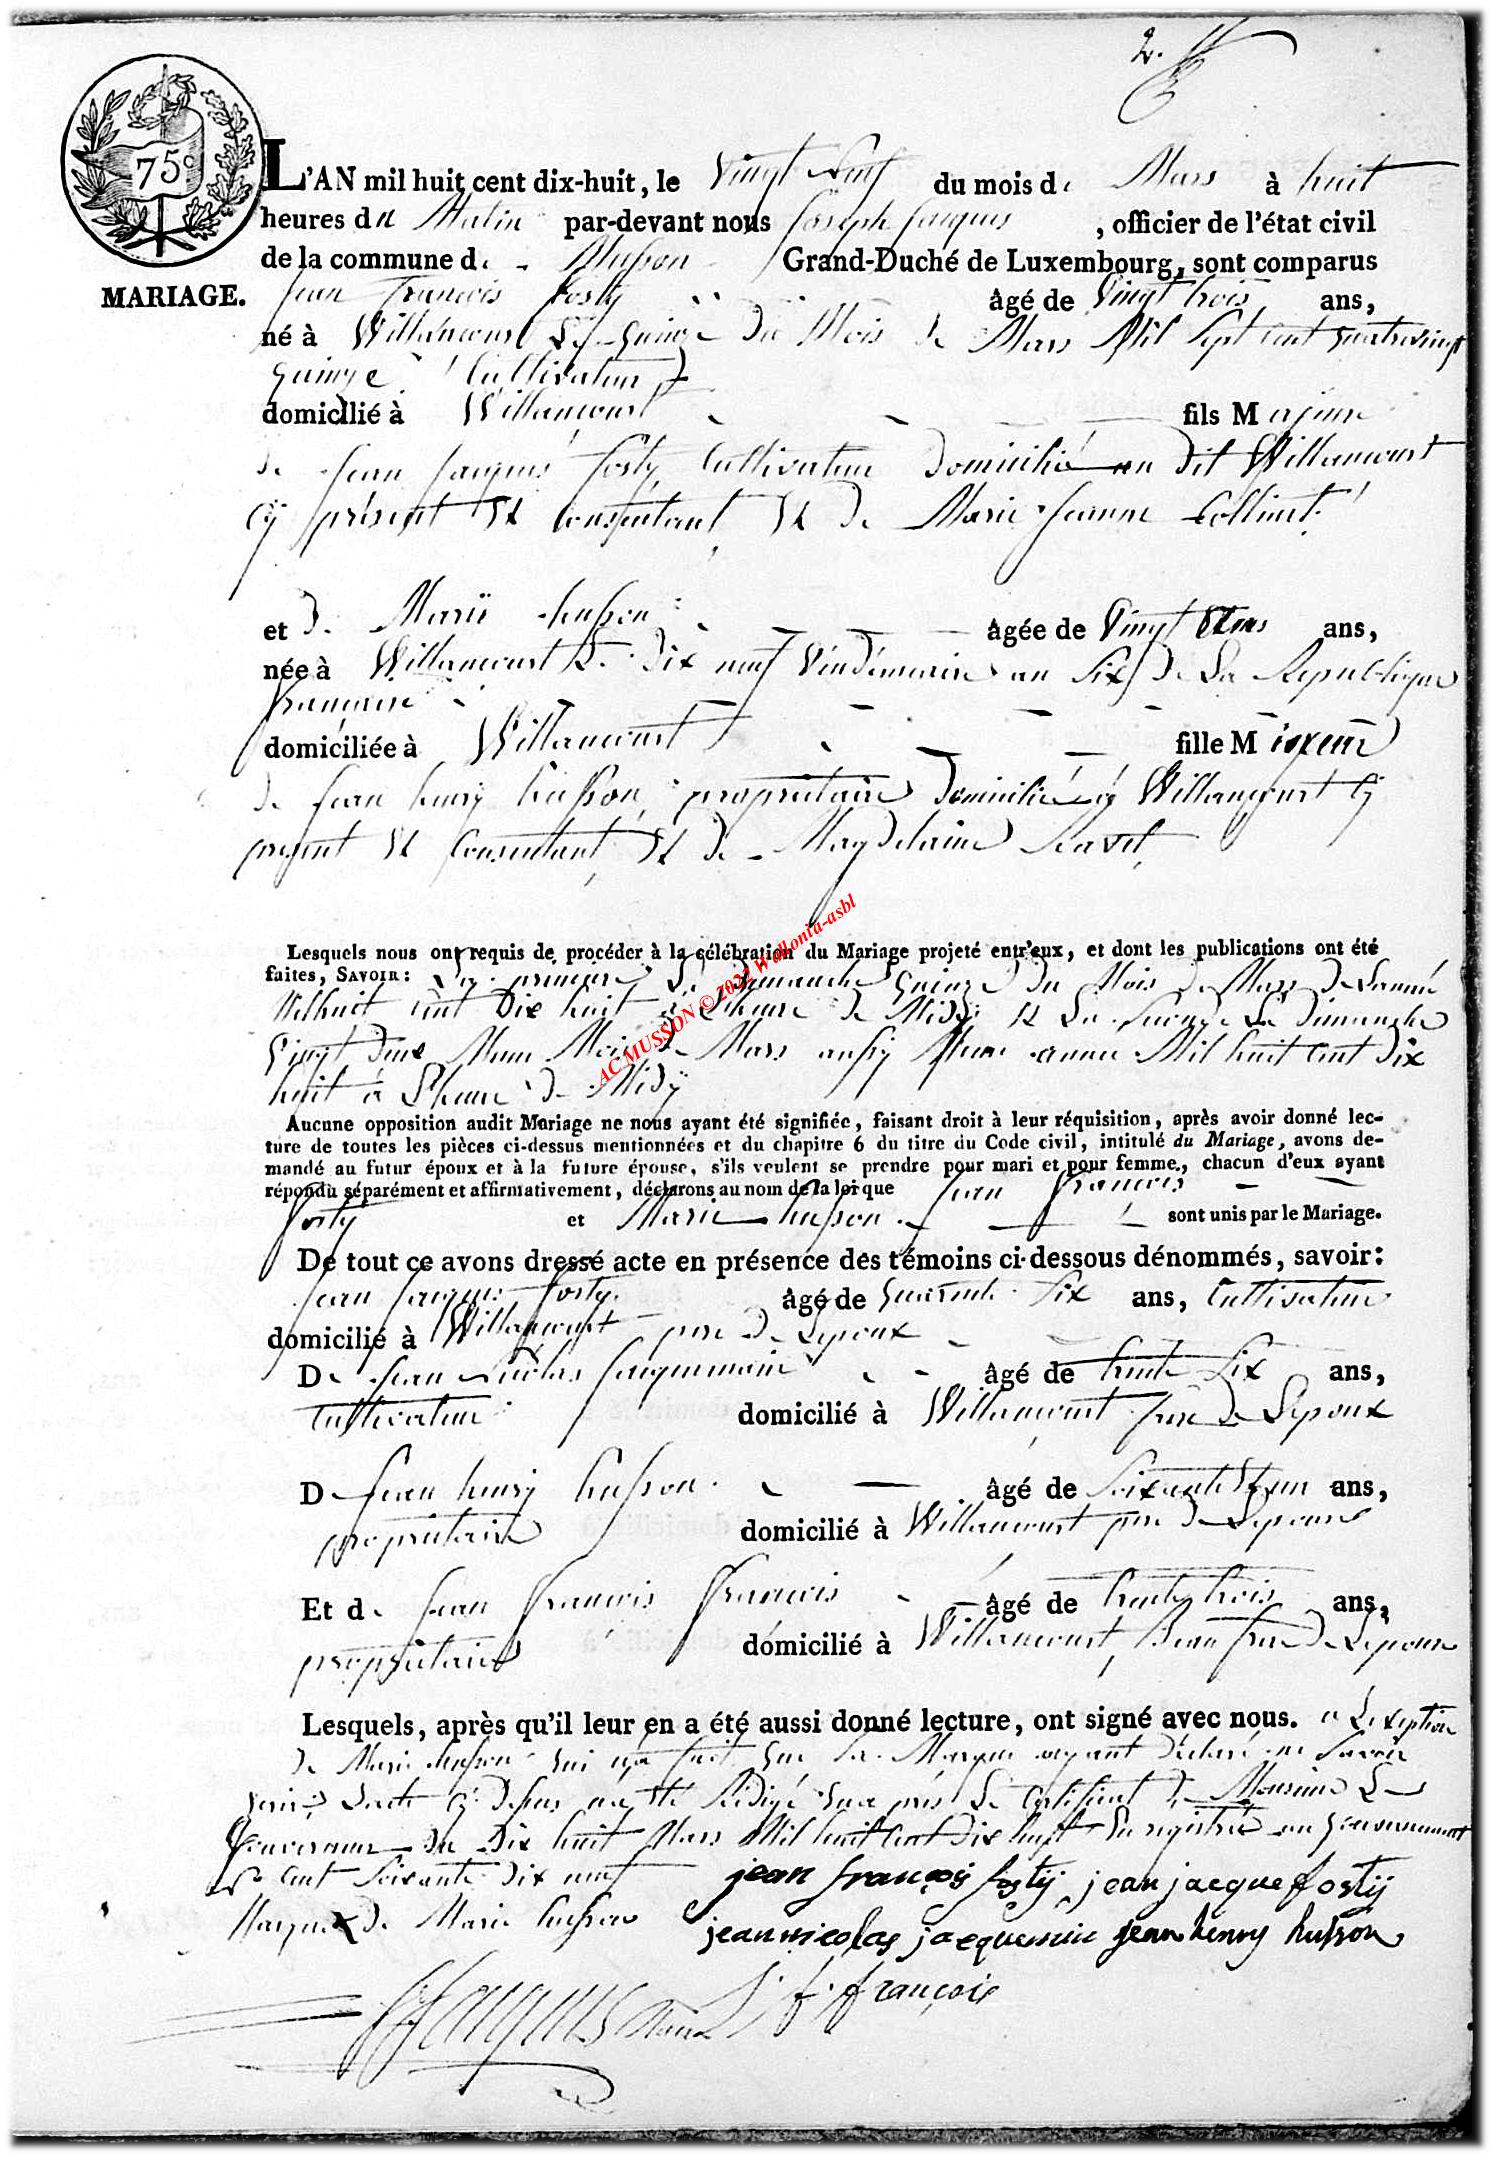 2.
75c
L'AN mil huit cent dix-huit, le vingt neuf du mois de Mars à huit
heures du Matin par-devant nous Joseph Jacques, officier de l'état civil
de la commune de Musson Grand-Duché de Luxembourg, sont comparus
MARIAGE.
Jean Francois fosty âgé de Vingt trois ans,
né à Willancourt Le quinze du Mois de Mars Mil Sept cent quatrevingt
quinze Cultivateur
domicilié à Willancourt fils Majeure
de Jean Jacques fosty Cultivateur Domicilié au dit Willancourt
cy présent Et Consentant Et De Marie Jeanne Collinet
et de Marie husson âgée de Vingt Et un ans,
née à Willancourt Le dix neuf Vindémiaire an Six De La Republique
francaise
domiciliée à Willancourt fille M ajeure
de Jean henry husson, propriétaire Domicilié à Willancourt cy
present Et Consentant Et de Magdelaine
Lesquels nous ont requis de procéder à la célébration du Mariage projeté entr'eux, et dont les publications ont été
faites, SAVOIR: La premiere Le Dimanche quinze du Mois De Mars De Lannée
Milhuit cent Dix huit à Lheure de Midy Et La Seconde Le Dimanche
Vingt deux Meme Mois De Mars aussy Meme année Mil huit cent Dix
huit à L'heure De Midy
AC MUSSON © 2022 Wallonia-asbl
Aucune opposition audit Mariage ne nous ayant été signifiée, faisant droit à leur réquisition, après avoir donné lec-
ture de toutes les pièces ci-dessus mentionnées et du chapitre 6 du titre du Code civil, intitulé du Mariage, avons de-
mandé au futur époux et à la future épouse, s'ils veulent se prendre pour mari et pour femme, chacun d'eux ayant
répondu séparément et affirmativement, déclarons au nom de la loi que Jean Francois
fosty et Marie husson sont unis par le Mariage.
De tout ce avons dressé acte en présence des témoins ci-dessous dénommés, savoir:
Jean Jacques fosty âgé de quarante Six ans, Cultivateur
domicilié à Willancourt pere De Lepoux
De Jean Nicolas Jacquemin âgé de trente Six ans,
Cultivateur domicilié à Willancourt De Lepoux
De Jean henry husson âgé de Soixante Et un ans,
propriétaire domicilié à Willancourt pere De Lepouse
Et de Jean francois francois âgé de trente trois ans,
propriétaire domicilié à Willancourt, Beau frere De Lepouse
Lesquels, après qu'il leur en a été aussi donné lecture, ont signé avec nous. a Lexeption
de Marie husson qui n'a fait que Sa Marque ayant déclaré ne Savoir
Lacte cy Dessus na été Rédigé que Le Certificat De Monsieur Le
Gouverneur du Dix huit Mars Mil huit cent Dix huit Enregistré au Gouvernement
N° cent Soixante Dix neuf jean françois fostÿ jean jacque fostÿ
Marque X De Marie husson jean nicolas jacquemin jean henry husson
J Jacques J. f. françois